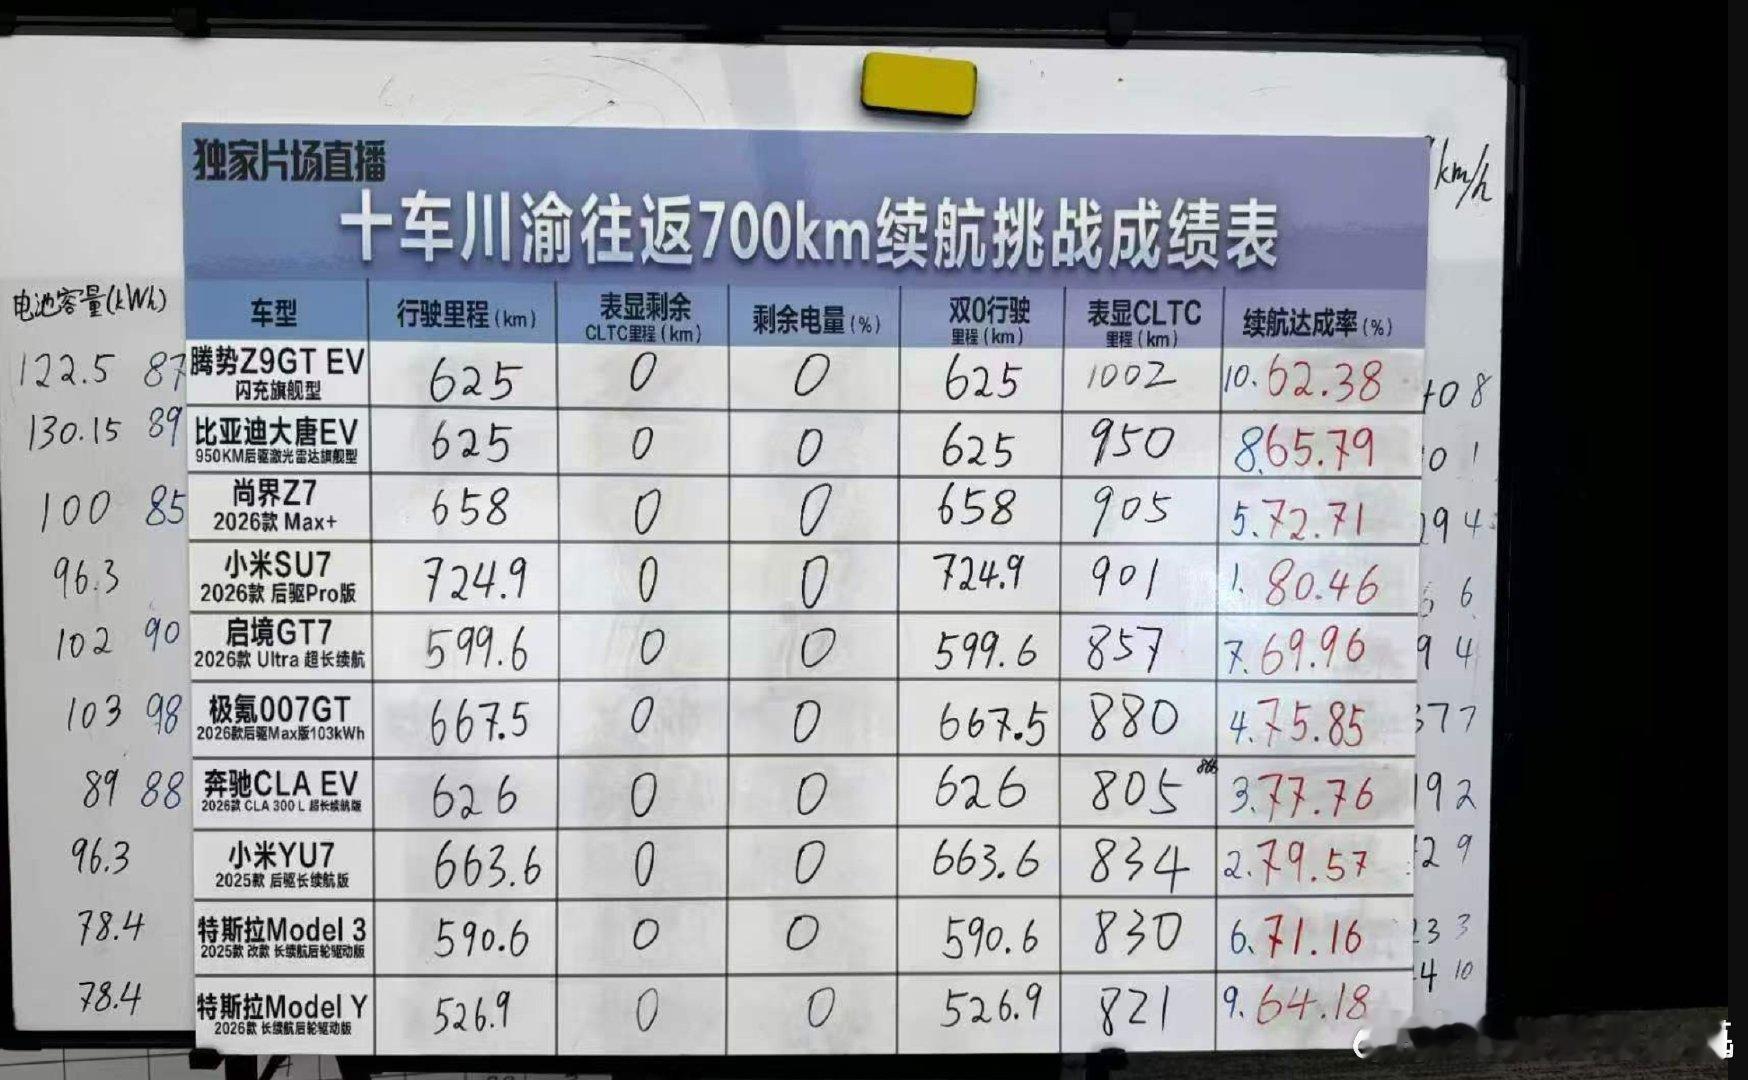 km/h
独家片场直播
十车川渝往返700km续航挑战成绩表
电池容量(kWh)
车型
行驶里程(km)
表显剩余
CLTC里程(km)
剩余电量(%)
双0行驶
里程(km)
表显CLTC
里程(km)
续航达成率(%)
122.5 87
腾势Z9GT EV
闪充旗舰型
625 0 0 625 1002 10.62.38
08
130.15 89
比亚迪大唐EV
950KM后驱激光雷达旗舰型
625 0 0 625 950 8.65.79
01
100 85
尚界Z7
2026款 Max+
658 0 0 658 905 5.72.71
94
96.3
小米SU7
2026款 后驱Pro版
724.9 0 0 724.9 901 1.80.46
6
102 90
启境GT7
2026款 Ultra 超长续航
599.6 0 0 599.6 857 7.69.96
9 4
103 98
极氪007GT
2026款后驱Max版103kWh
667.5 0 0 667.5 880 4.75.85
77
89 88
奔驰CLA EV
2026款 CLA 300 L 超长续航版
626 0 0 626 805 3.77.76
92
96.3
小米YU7
2025款 后驱长续航版
663.6 0 0 663.6 834 2.79.57
29
78.4
特斯拉Model 3
2025款 改款 长续航后轮驱动版
590.6 0 0 590.6 830 6.71.16
3 3
4 10
78.4
特斯拉Model Y
2026款 长续航后轮驱动版
526.9 0 0 526.9 821 9.64.18